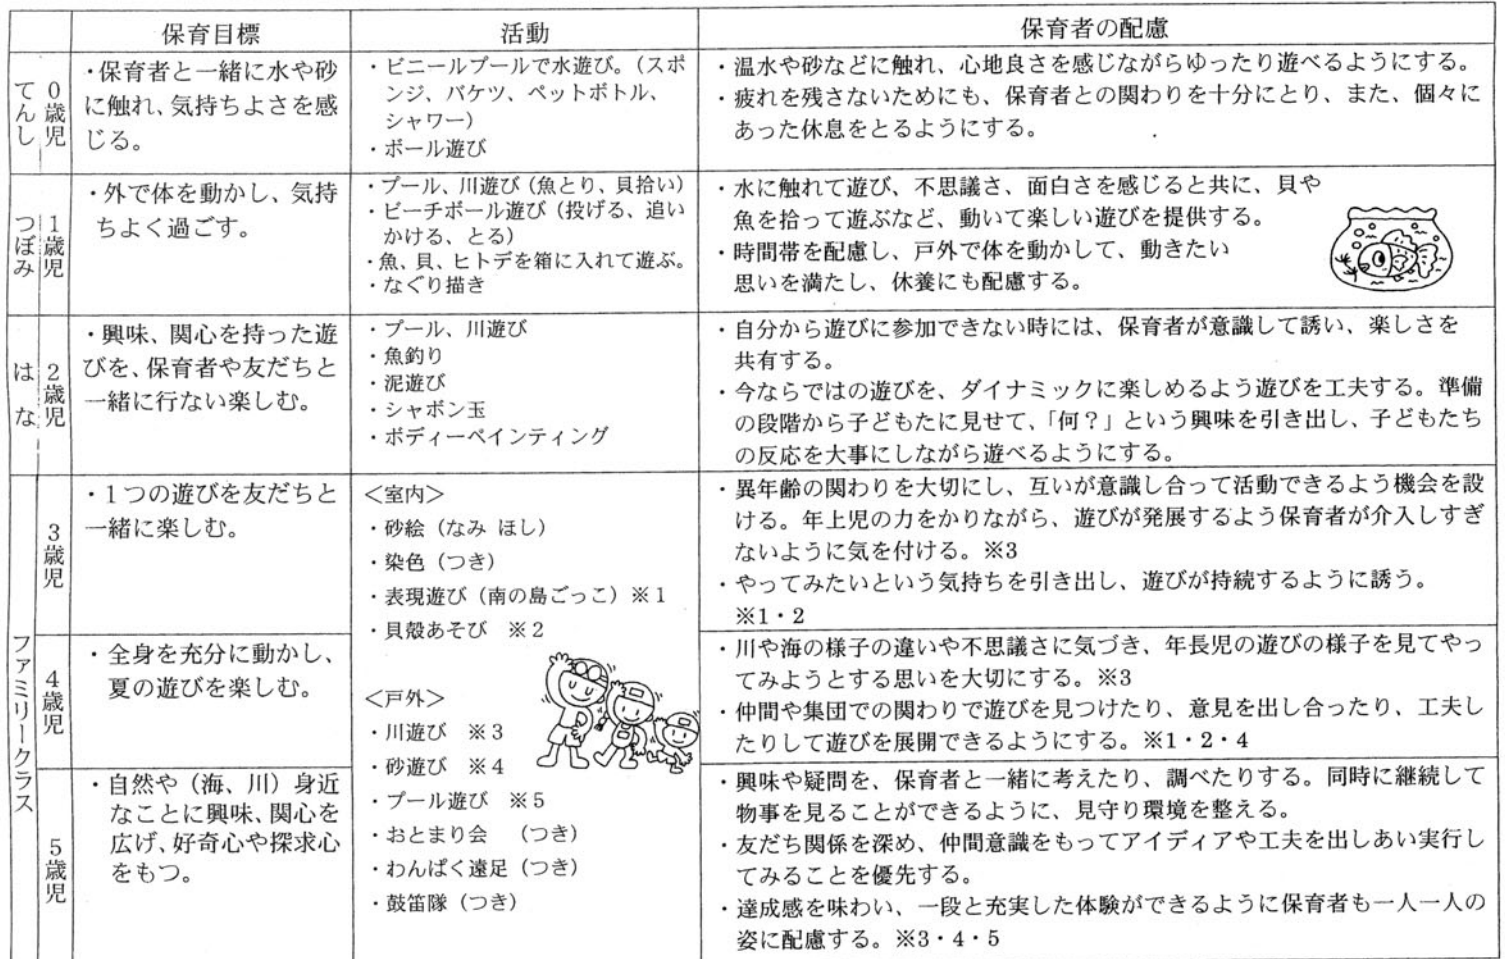 保育目標
活動
保育者の配慮
てんし
0歳児
・保育者と一緒に水や砂
に触れ、気持ちよさを感
じる。
・ビニールプールで水遊び。（スポ
ンジ、バケツ、ペットボトル、
シャワー）
・ボール遊び
・温水や砂などに触れ、心地良さを感じながらゆったり遊べるようにする。
・疲れを残さないためにも、保育者との関わりを十分にとり、また、個々に
あった休息をとるようにする。
つぼみ
1歳児
・外で体を動かし、気持
ちよく過ごす。
・プール、川遊び（魚とり、貝拾い）
・ビーチボール遊び（投げる、追い
かける、とる）
・魚、貝、ヒトデを箱に入れて遊ぶ。
・なぐり描き
・水に触れて遊び、不思議さ、面白さを感じると共に、貝や
魚を拾って遊ぶなど、動いて楽しい遊びを提供する。
・時間帯を配慮し、戸外で体を動かして、動きたい
思いを満たし、休養にも配慮する。
はな
2歳児
・興味、関心を持った遊
びを、保育者や友だちと
一緒に行ない楽しむ。
・プール、川遊び
・魚釣り
・泥遊び
・シャボン玉
・ボディーペインティング
・自分から遊びに参加できない時には、保育者が意識して誘い、楽しさを
共有する。
・今ならではの遊びを、ダイナミックに楽しめるよう遊びを工夫する。準備
の段階から子どもたに見せて、「何？」という興味を引き出し、子どもたち
の反応を大事にしながら遊べるようにする。
ファミリークラス
3歳児
・1つの遊びを友だちと
一緒に楽しむ。
＜室内＞
・砂絵（なみ ほし）
・染色（つき）
・表現遊び（南の島ごっこ）※1
・貝殻あそび ※2
・異年齢の関わりを大切にし、互いが意識し合って活動できるよう機会を設
ける。年上児の力をかりながら、遊びが発展するよう保育者が介入しすぎ
ないように気を付ける。※3
・やってみたいという気持ちを引き出し、遊びが持続するように誘う。
※1・2
4歳児
・全身を充分に動かし、
夏の遊びを楽しむ。
＜戸外＞
・川遊び ※3
・砂遊び ※4
・プール遊び ※5
・おとまり会 （つき）
・わんぱく遠足（つき）
・鼓笛隊（つき）
・川や海の様子の違いや不思議さに気づき、年長児の遊びの様子を見てやっ
てみようとする思いを大切にする。※3
・仲間や集団での関わりで遊びを見つけたり、意見を出し合ったり、工夫し
たりして遊びを展開できるようにする。※1・2・4
5歳児
・自然や（海、川）身近
なことに興味、関心を
広げ、好奇心や探求心
をもつ。
・興味や疑問を、保育者と一緒に考えたり、調べたりする。同時に継続して
物事を見ることができるように、見守り環境を整える。
・友だち関係を深め、仲間意識をもってアイディアや工夫を出しあい実行し
てみることを優先する。
・達成感を味わい、一段と充実した体験ができるように保育者も一人一人の
姿に配慮する。※3・4・5